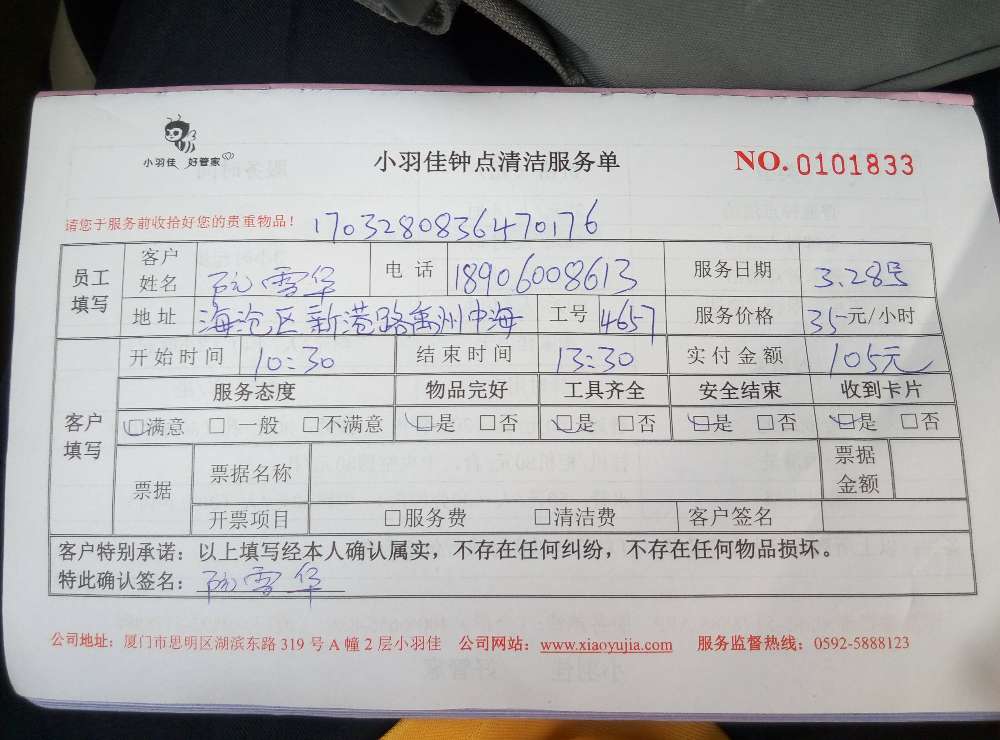 小羽佳 好管家
小羽佳钟点清洁服务单
NO. 0101833
请您于服务前收拾好您的贵重物品！ 1703280836470176
员工填写 客户姓名 阮雪华 电话 18906008613 服务日期 3.28号
地址 海沧区新港路禹州中海 工号 4657 服务价格 35元/小时
客户填写 开始时间 10:30 结束时间 13:30 实付金额 105元
服务态度 物品完好 工具齐全 安全结束 收到卡片
☑满意 □一般 □不满意 ☑是 □否 ☑是 □否 ☑是 □否 ☑是 □否
票据 票据名称 票据金额
开票项目 □服务费 □清洁费 客户签名
客户特别承诺：以上填写经本人确认属实，不存在任何纠纷，不存在任何物品损坏。
特此确认签名：阮雪华
公司地址：厦门市思明区湖滨东路 319 号 A 幢 2 层小羽佳 公司网站：www.xiaoyujia.com 服务监督热线：0592-5888123